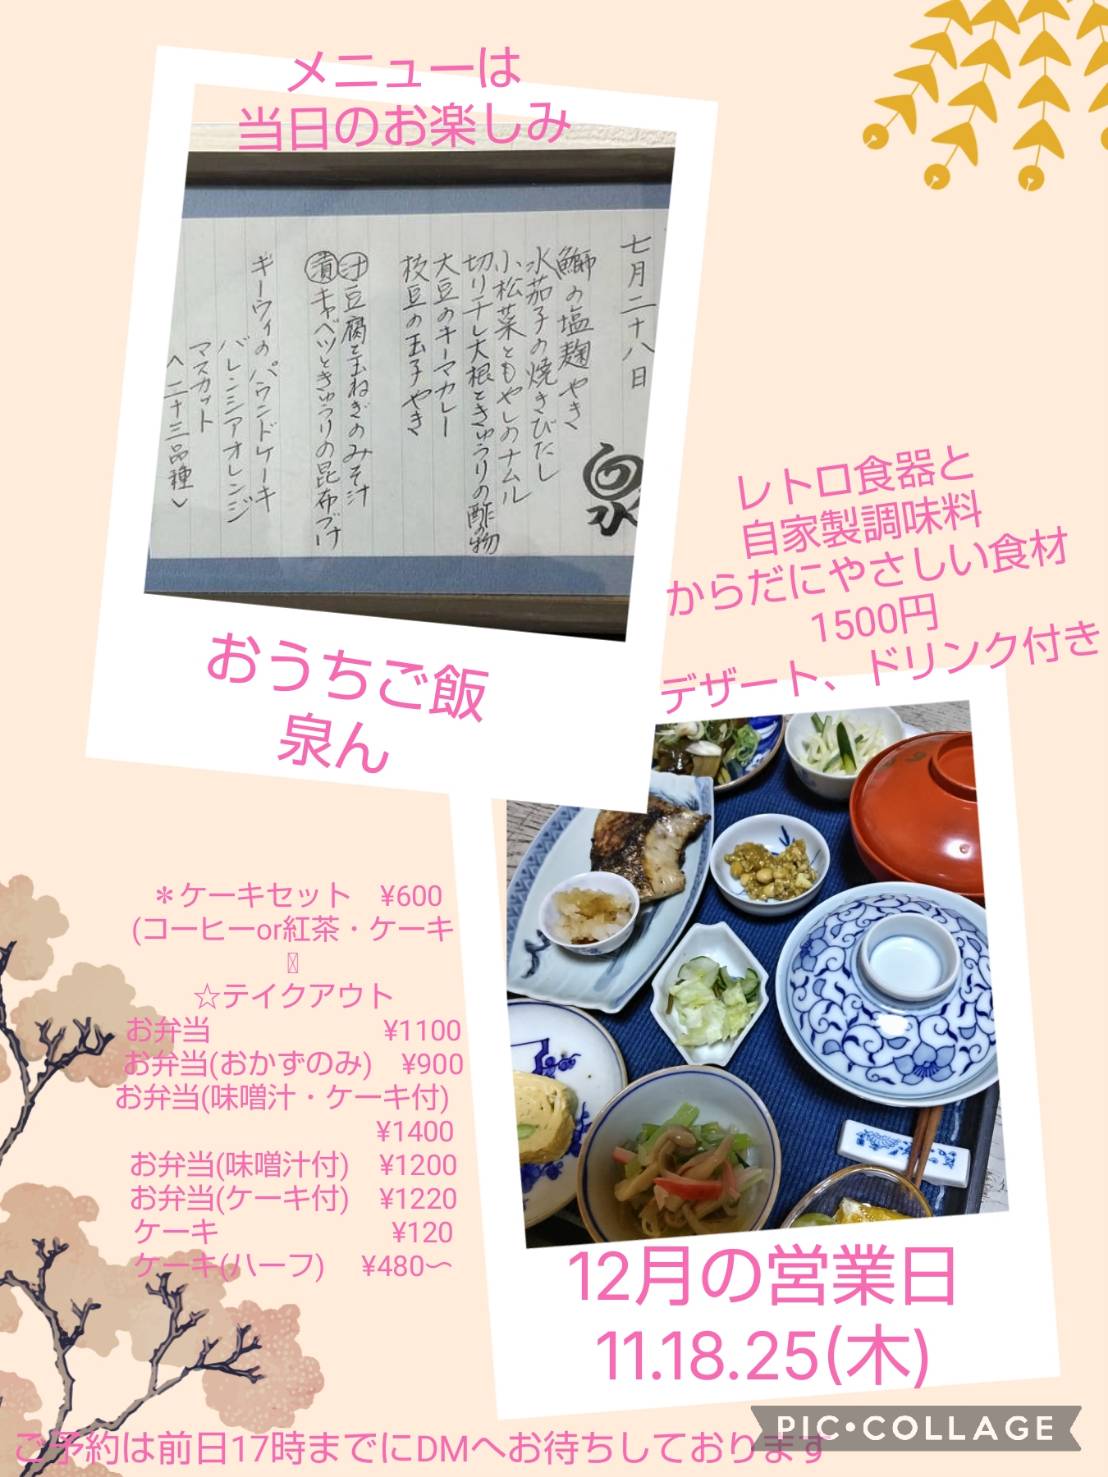 メニューは
当日のお楽しみ
七月二十八日
鰤の塩麹やき
水茄子の焼きびたし
小松菜ともやしのナムル
切り干し大根ときゅうりの酢の物
大豆のキーマカレー
枝豆の玉子やき
汁 豆腐と玉ねぎのみそ汁
漬 キャベツときゅうりの昆布づけ
キーウィのパウンドケーキ
バレンシアオレンジ
マスカット
(二十三品種)
泉
おうちご飯
泉ん
レトロ食器と
自家製調味料
からだにやさしい食材
1500円
デザート、ドリンク付き
＊ケーキセット ¥600
(コーヒーor紅茶・ケーキ
☆テイクアウト
お弁当 ¥1100
お弁当(おかずのみ) ¥900
お弁当(味噌汁・ケーキ付)
¥1400
お弁当(味噌汁付) ¥1200
お弁当(ケーキ付) ¥1220
ケーキ ¥120
ケーキ(ハーフ) ¥480〜
12月の営業日
11.18.25(木)
ご予約は前日17時までにDMへお待ちしております
PIC•COLLAGE